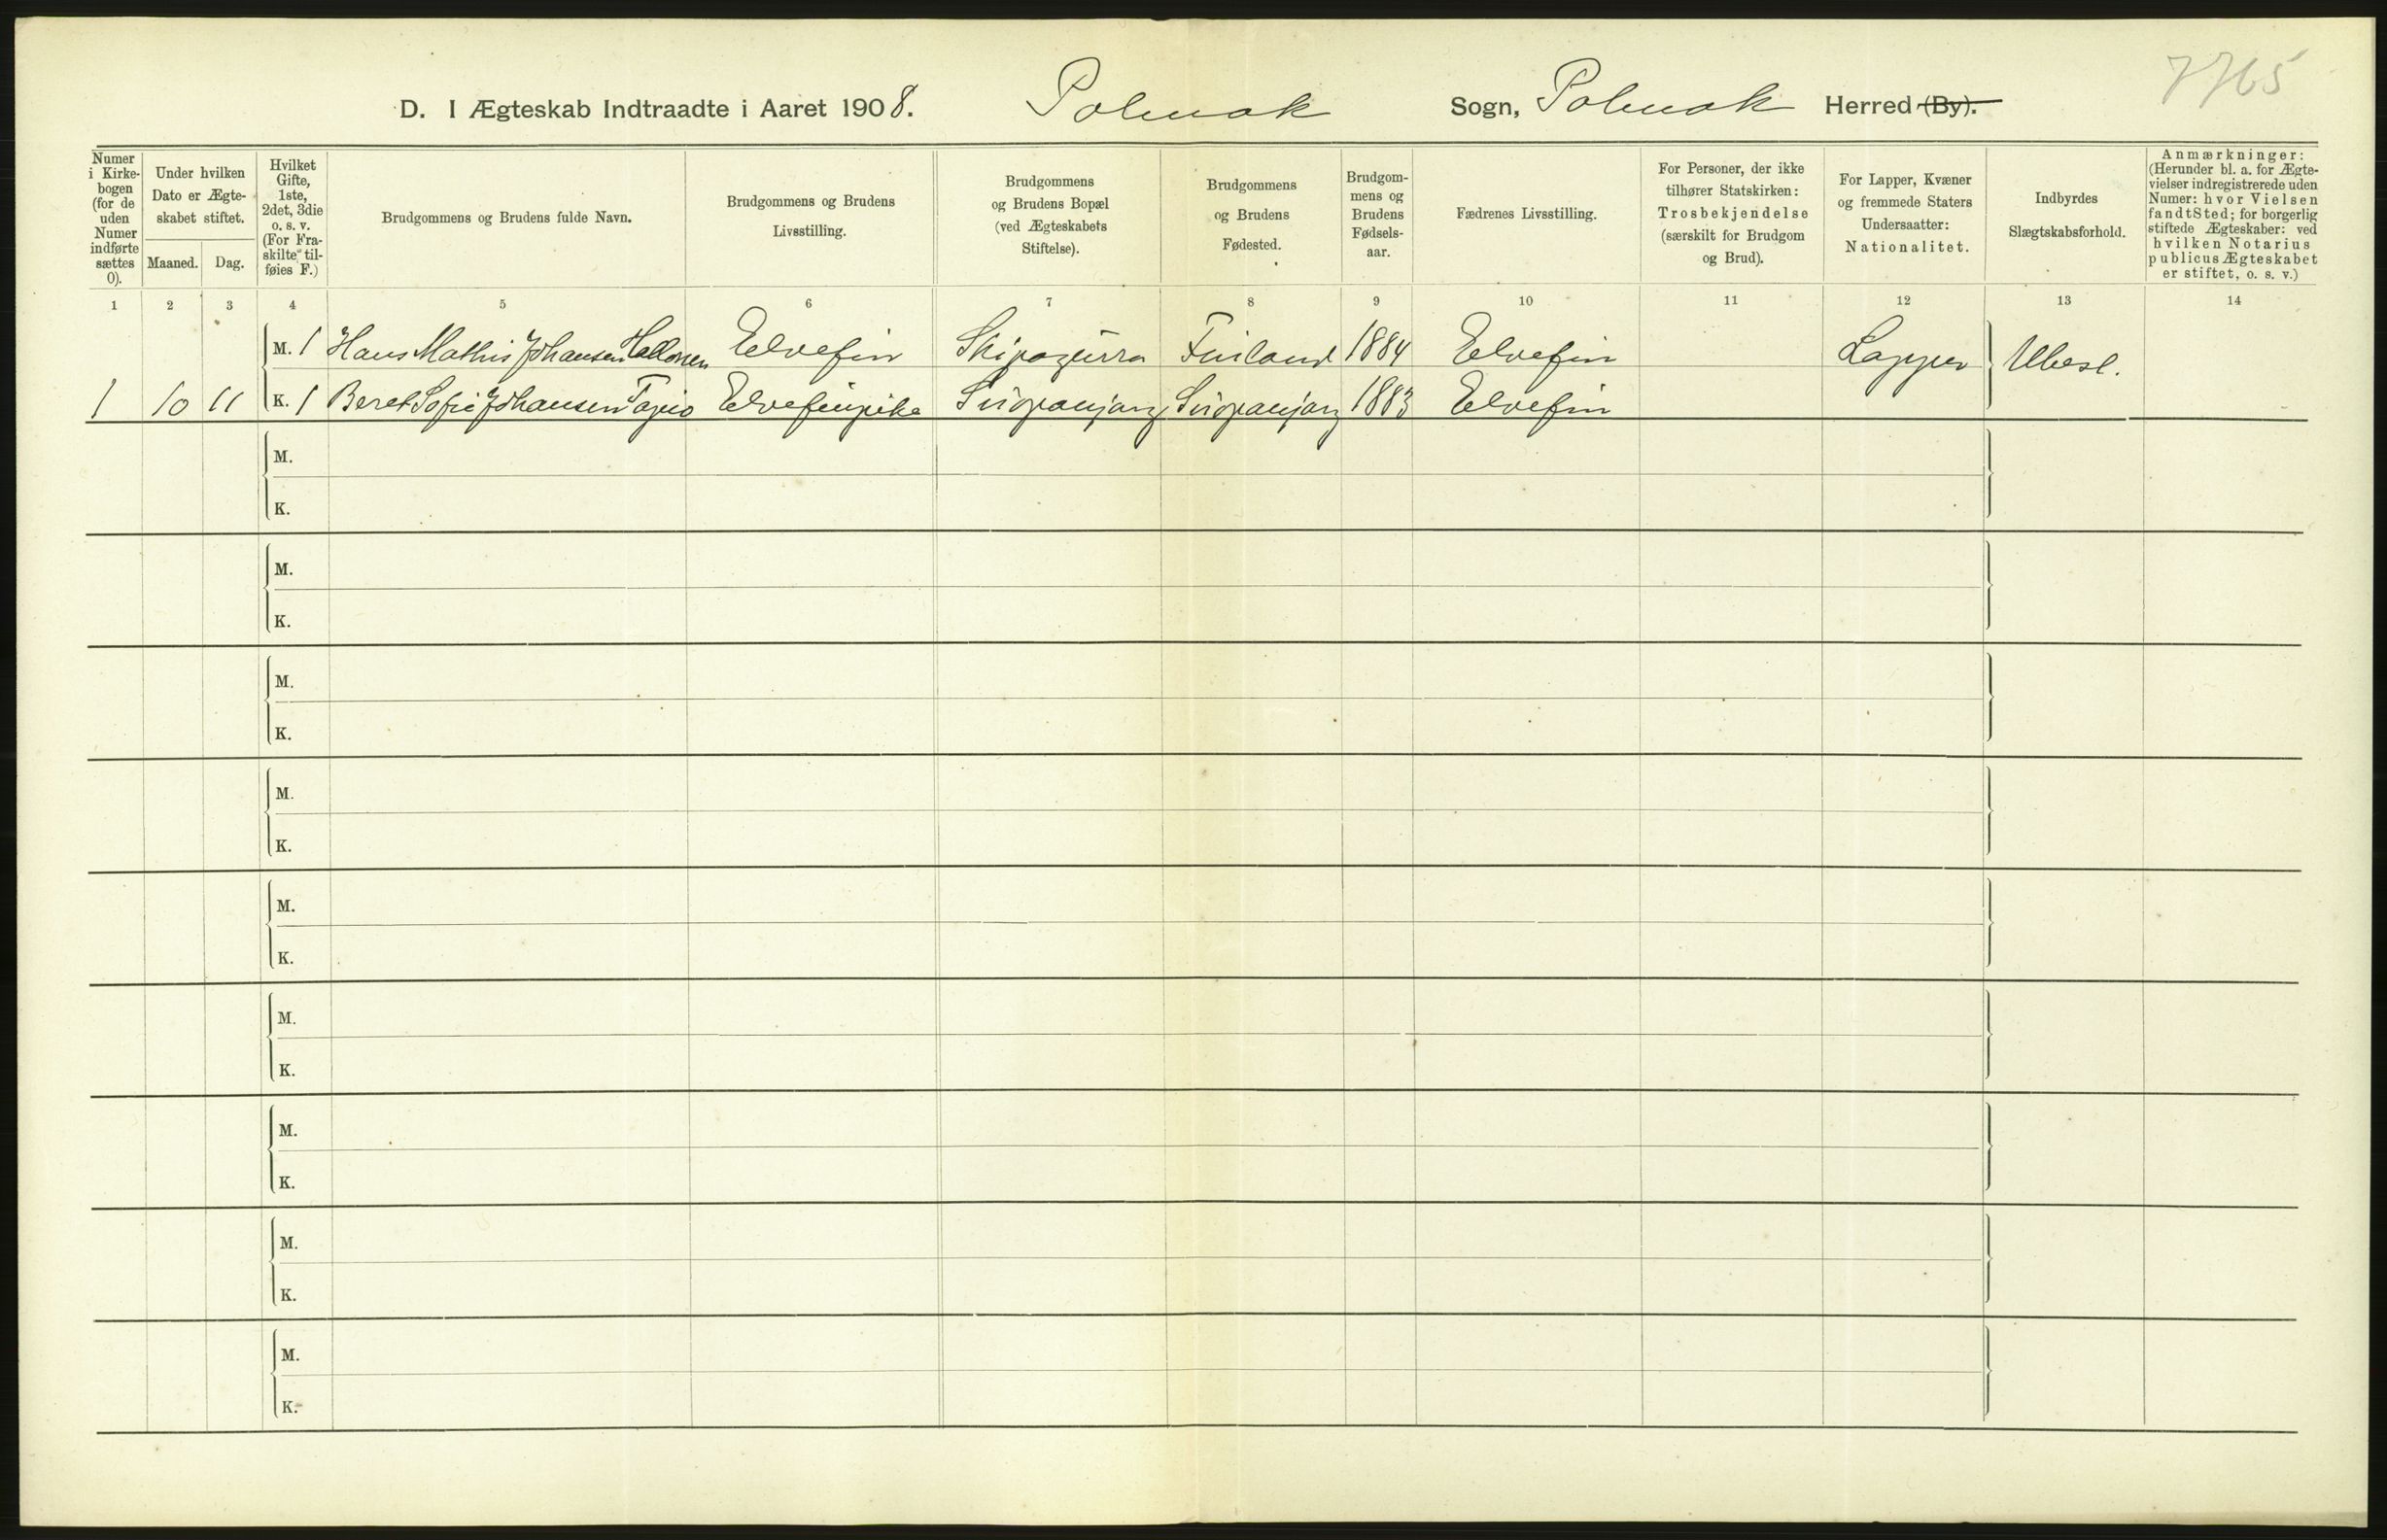 7765
D. I Ægteskab Indtraadte i Aaret 1908. Polmak Sogn, Polmak Herred (By).
Numer i Kirkebogen (for de uden Numer indførte sættes 0).
Under hvilken Dato er Ægteskabet stiftet.
Maaned. Dag.
Hvilket Gifte, 1ste, 2det, 3die o. s. v. (For Fraskilte tilføies F.)
Brudgommens og Brudens fulde Navn.
Brudgommens og Brudens Livsstilling.
Brudgommens og Brudens Bopæl (ved Ægteskabets Stiftelse).
Brudgommens og Brudens Fødested.
Brudgommens og Brudens Fødselsaar.
Fædrenes Livsstilling.
For Personer, der ikke tilhører Statskirken: Trosbekjendelse (særskilt for Brudgom og Brud).
For Lapper, Kvæner og fremmede Staters Undersaatter: Nationalitet.
Indbyrdes Slægtskabsforhold.
Anmærkninger: (Herunder bl. a. for Ægtevielser indregistrerede uden Numer: hvor Vielsen fandt Sted; for borgerlig stiftede Ægteskaber: ved hvilken Notarius publicus Ægteskabet er stiftet, o. s. v.)
1 2 3 4 5 6 7 8 9 10 11 12 13 14
M. 1 Hans Mathis Johansen Hallonen Elvefin Skipagurra Finland 1884 Elvefin Lapper Ubesl.
1 10 11 K. 1 Beret Sofie Johansen Tapio Elvefinpike Sirpanjarg Sirpanjarg 1883 Elvefin
M.
K.
M.
K.
M.
K.
M.
K.
M.
K.
M.
K.
M.
K.
M.
K.
M.
K.